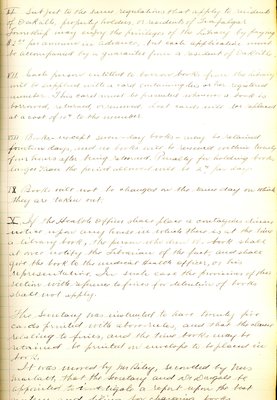 VI. Subject to the same regulations that apply to residents
of Oakville, property holders, & residents of Trafalgar
Township may enjoy the privileges of the Library by paying
$1.00 per annum in advance, but each application must
be accompanied by a guarantee from a resident of Oakville.
VII. Each person entitled to borrow books from the library
will be supplied with a card containing his or her registered
number. This card must be presented whenever a book is
borrowed, returned, renewed. Lost cards will be replaced
at a cost of 10¢ to the member.
VIII. Books except seven-day books may be retained
fourteen days, and no books will be reissued within twenty
four hours after being returned. Penalty for holding book
longer than the period allowed will be 2¢ per day.
IX Books will not be changed on the same day on which
they are taken out.
X. If the Health Officer shall place a contagious disease
notice upon any house in which there is at the time
a library book, the person who drew the book shall
at once notify the Librarian of the fact, and shall
give the book to the medical Health officer, or his
representative. In such case the provisions of the
section with reference to fines for detention of books
shall not apply.
The Secretary was instructed to have twenty five
cards printed with above rules, and that the clauses
relating to fines, and the time books may be
retained be printed on envelope to be placed in
book.
It was moved by Mr. , seconded by Miss
, that the Secretary and be
appointed to investigate & report upon the best
for charging books